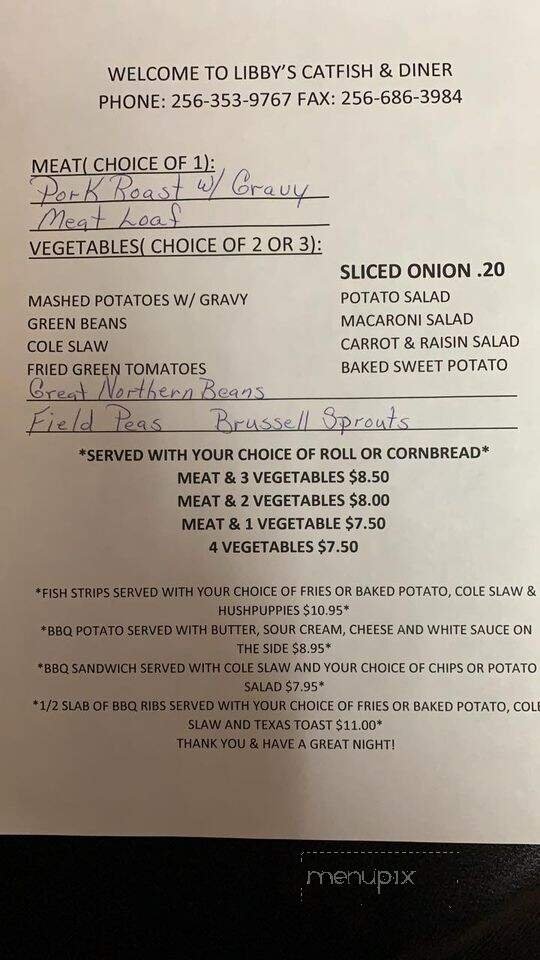 WELCOME TO LIBBY'S CATFISH & DINER
PHONE: 256-353-9767 FAX: 256-686-3984
MEAT( CHOICE OF 1):
Pork Roast w/ Gravy
Meat Loaf
VEGETABLES( CHOICE OF 2 OR 3):
SLICED ONION .20
MASHED POTATOES W/ GRAVY POTATO SALAD
GREEN BEANS MACARONI SALAD
COLE SLAW CARROT & RAISIN SALAD
FRIED GREEN TOMATOES BAKED SWEET POTATO
Great Northern Beans
Field Peas Brussell Sprouts
*SERVED WITH YOUR CHOICE OF ROLL OR CORNBREAD*
MEAT & 3 VEGETABLES $8.50
MEAT & 2 VEGETABLES $8.00
MEAT & 1 VEGETABLE $7.50
4 VEGETABLES $7.50
*FISH STRIPS SERVED WITH YOUR CHOICE OF FRIES OR BAKED POTATO, COLE SLAW &
HUSHPUPPIES $10.95*
*BBQ POTATO SERVED WITH BUTTER, SOUR CREAM, CHEESE AND WHITE SAUCE ON
THE SIDE $8.95*
*BBQ SANDWICH SERVED WITH COLE SLAW AND YOUR CHOICE OF CHIPS OR POTATO
SALAD $7.95*
*1/2 SLAB OF BBQ RIBS SERVED WITH YOUR CHOICE OF FRIES OR BAKED POTATO, COLE
SLAW AND TEXAS TOAST $11.00*
THANK YOU & HAVE A GREAT NIGHT!
menupix